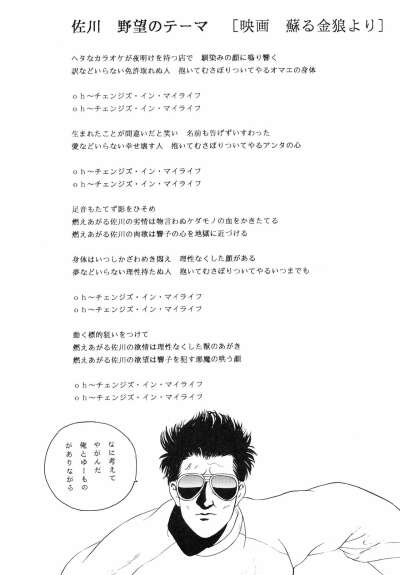 佐川　野望のテーマ　［映画　蘇る金狼より］
ヘタなカラオケが夜明けを待つ店で　馴染みの顔に鳴り響く
訳などいらない免許取れぬ人　抱いてむさぼりついてやるオマエの身体
ｏｈ〜チェンジズ・イン・マイライフ
ｏｈ〜チェンジズ・イン・マイライフ
生まれたことが間違いだと笑い　名前も告げずいすわった
愛などいらない幸せ壊す人　抱いてむさぼりついてやるアンタの心
ｏｈ〜チェンジズ・イン・マイライフ
ｏｈ〜チェンジズ・イン・マイライフ
足音もたてず影をひそめ
燃えあがる佐川の劣情は物言わぬケダモノの血をかきたてる
燃えあがる佐川の肉欲は響子の心を地獄に近づける
身体はいつしかざわめき悶え　理性なくした顔がある
夢などいらない理性持たぬ人　抱いてむさぼりついてやるいつまでも
ｏｈ〜チェンジズ・イン・マイライフ
ｏｈ〜チェンジズ・イン・マイライフ
動く標的狙いをつけて
燃えあがる佐川の欲情は理性なくした獣のあがき
燃えあがる佐川の欲望は響子を犯す悪魔の呪う顔
ｏｈ〜チェンジズ・イン・マイライフ
ｏｈ〜チェンジズ・イン・マイライフ
なに考えて
やがんだ
俺とゆーもの
がありながら